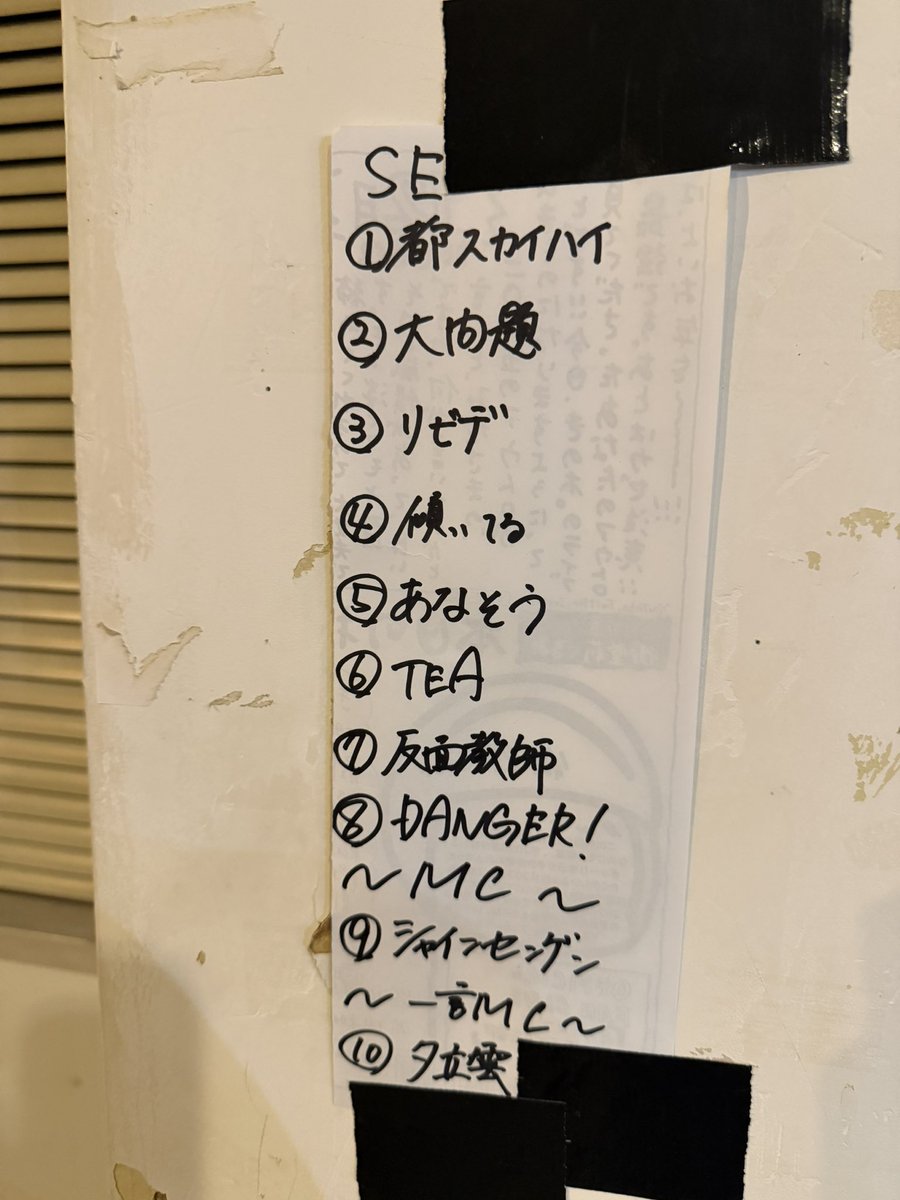 SE
①都スカイハイ
②大問題
③リビデ
④傾いてる
⑤あなそう
⑥TEA
⑦反面教師
⑧DANGER!
～MC～
⑨シャインセンゲン
～一言MC～
⑩夕立雲